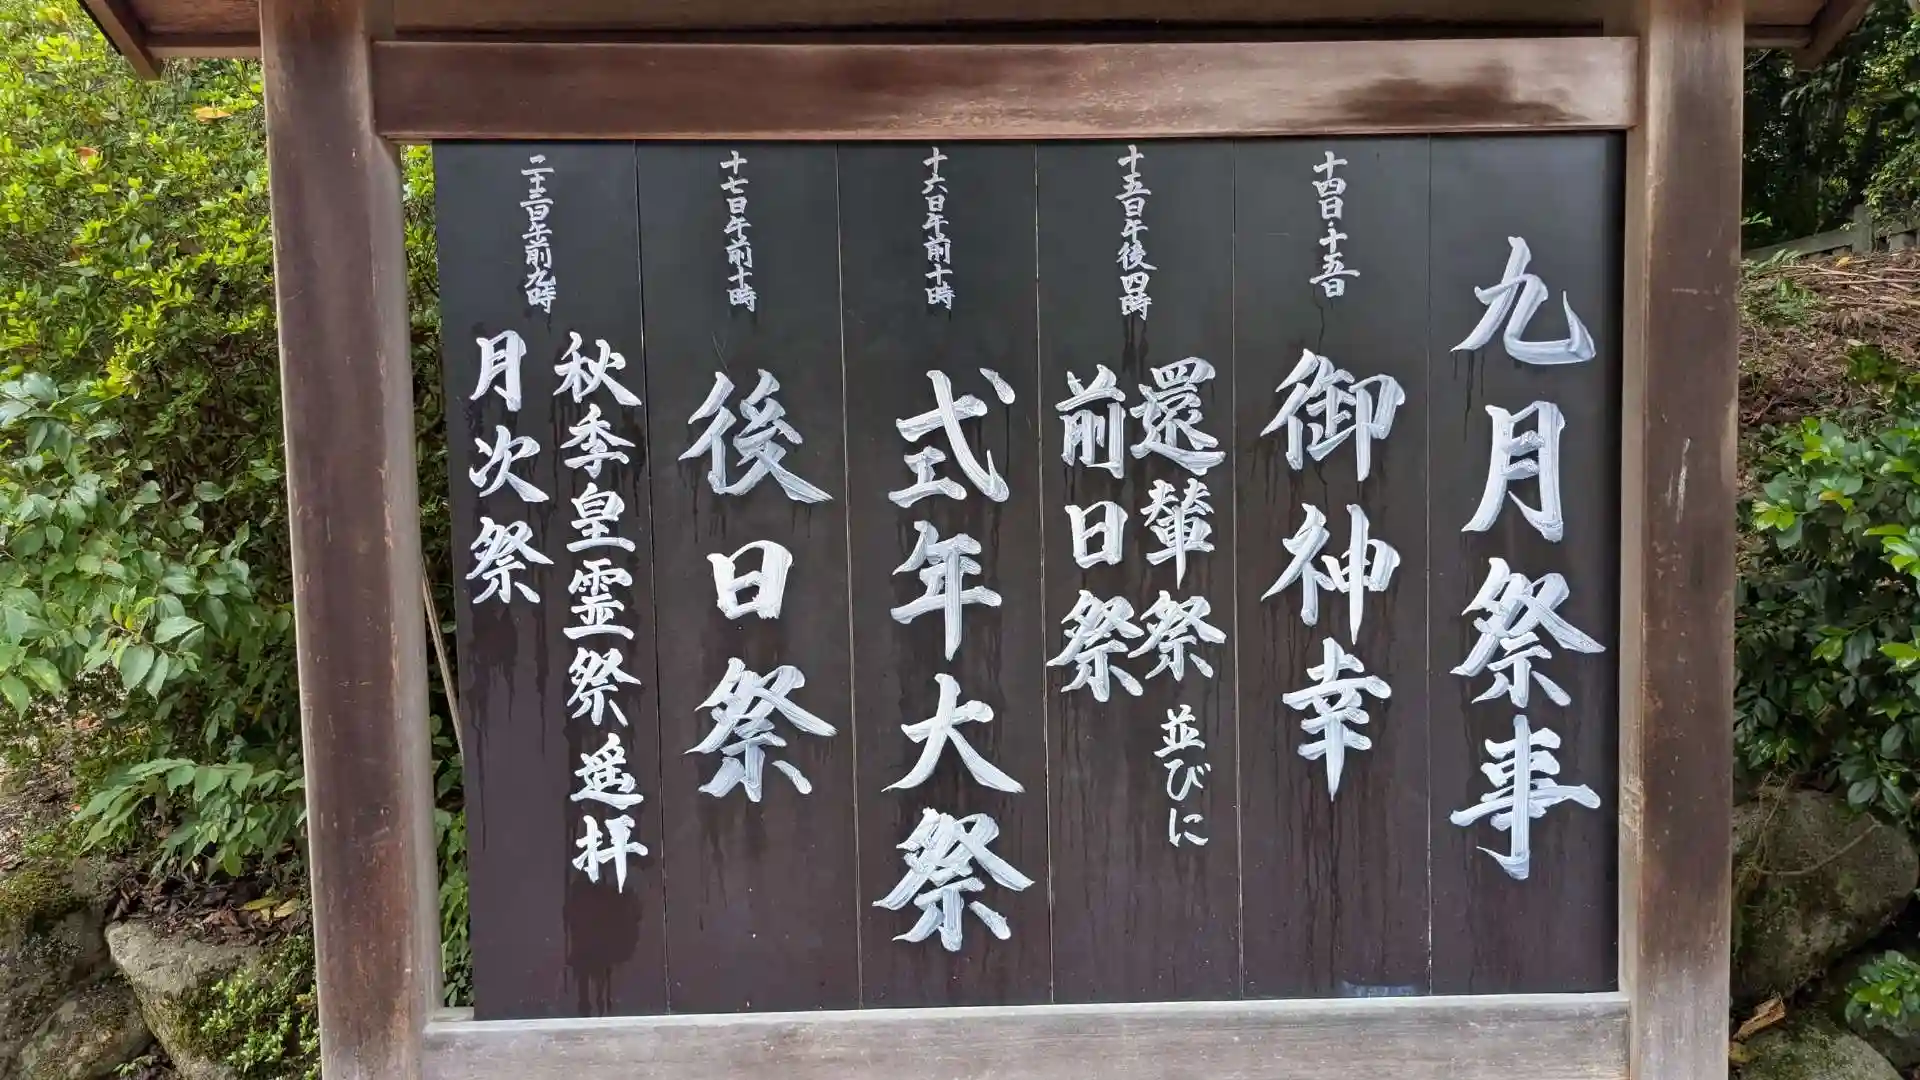 九月祭事
十四日・十五日
御神幸
十五日午後四時
還輦祭 並びに
前日祭
十六日午前十時
式年大祭
十七日午前十時
後日祭
二十三日午前九時
秋季皇霊祭遥拝
月次祭